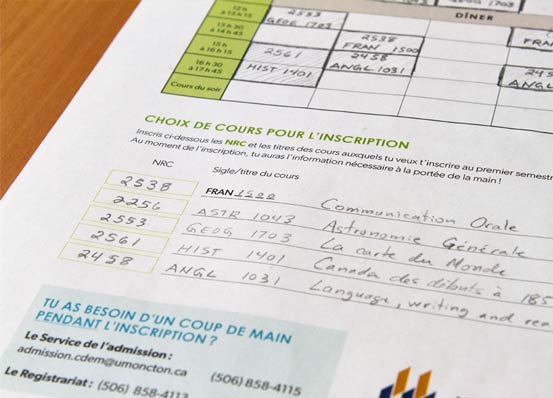 12 h
à 12 h 15
2553
GEOG 1703
1703
DÎNER
13 h 30
à 14 h 45
2538
FRAN 1500
FRAN
15 h
à 16 h 15
2561
HIST 1401
2458
ANGL 1031
ANGL
16 h 30
à 17 h 45
Cours du soir
CHOIX DE COURS POUR L'INSCRIPTION
Inscris ci-dessous les NRC et les titres des cours auxquels tu veux t'inscrire au premier semestr
Au moment de l'inscription, tu auras l'information nécessaire à la portée de la main !
NRC Sigle/titre du cours
2538 FRAN 1500 Communication Orale
2256 ASTR 1043 Astronomie Générale
2553 GEOG 1703 La carte du Monde
2561 HIST 1401 Canada des débuts à 185
2458 ANGL 1031 Language, writing and rea
TU AS BESOIN D'UN COUP DE MAIN
PENDANT L'INSCRIPTION ?
Le Service de l'admission :
admission.cdem@umoncton.ca (506) 858-4115
Le Registrariat : (506) 858-4113